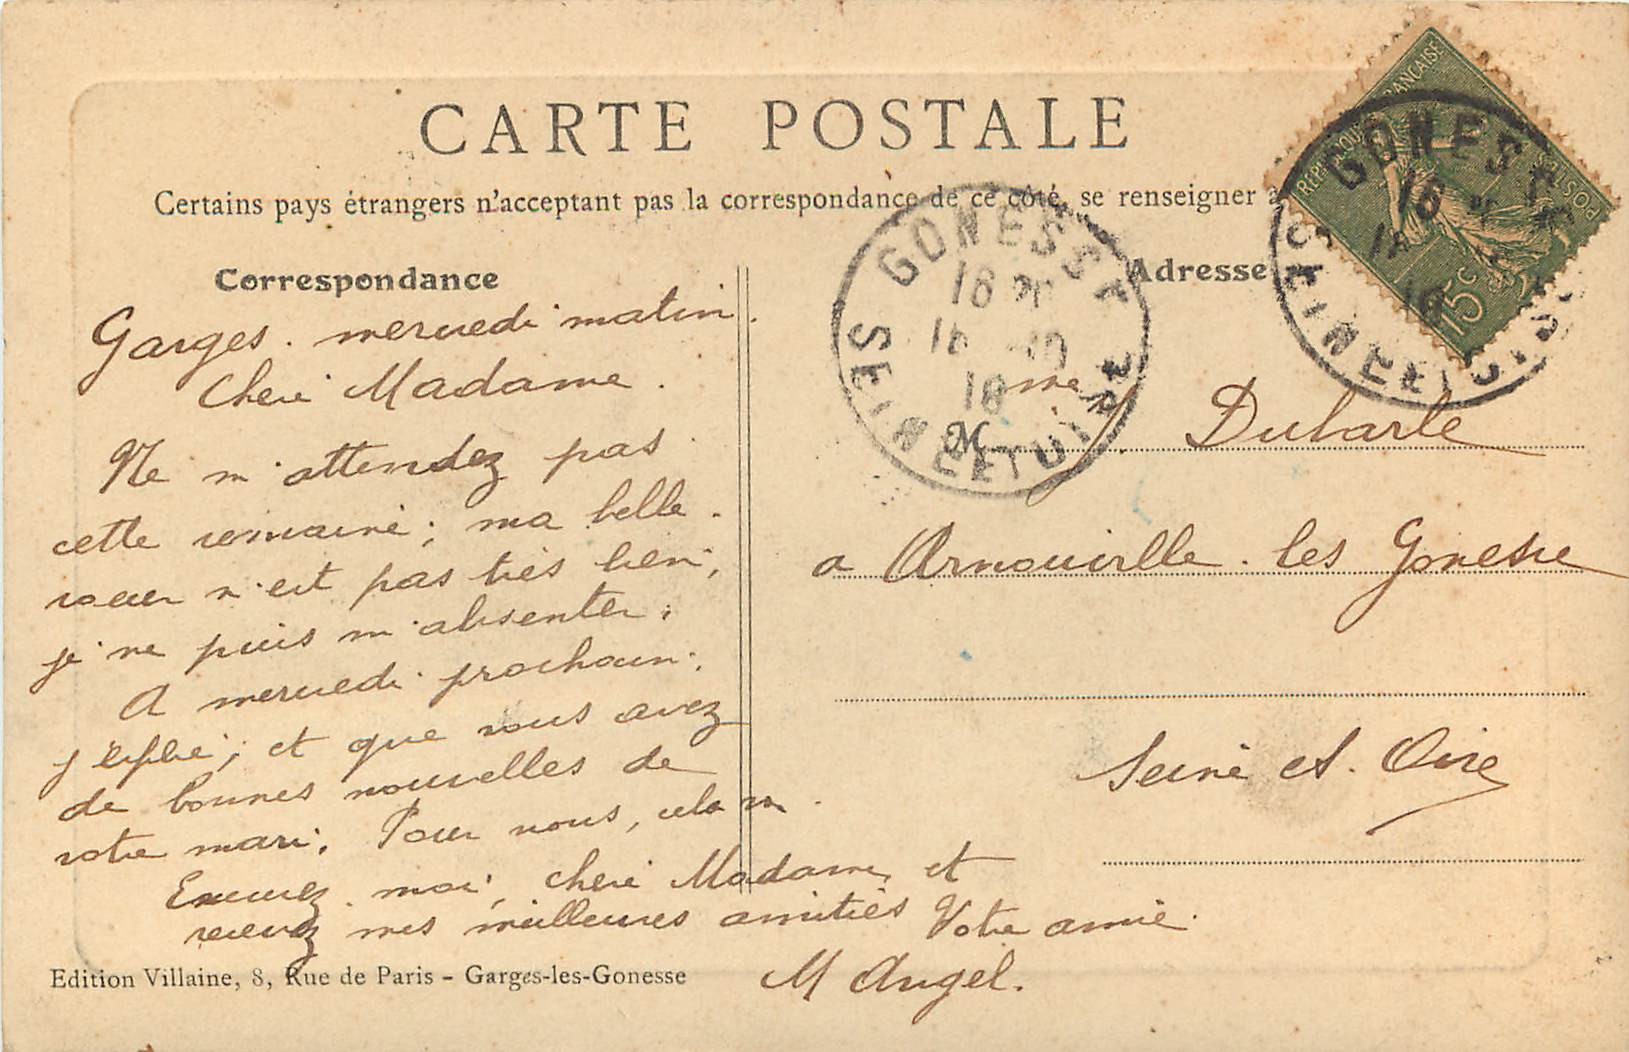 CARTE POSTALE
Certains pays étrangers n'acceptant pas la correspondance de ce côté, se renseigner à
Correspondance
Garges. mercredi matin.
Chère Madame.
Ne m'attendez pas
cette semaine; ma belle-
sœur n'est pas très bien,
je ne puis m'absenter.
A mercredi prochain,
j'espère, et que vous avez
de bonnes nouvelles de
votre mari. Pour nous, cela va.
Excusez-moi, chère Madame, et
recevez mes meilleures amitiés Votre amie.
M Angel.
Edition Villaine, 8, Rue de Paris - Garges-les-Gonesse
Adresse
Mme Dubarle
a Arnouville-les Gonesse
Seine et Oise
REPUBLIQUE FRANÇAISE
POSTES
15c
GONESSE
16
18
SEINE ET OISE
GONESSE
16
18
SEINE ET OISE